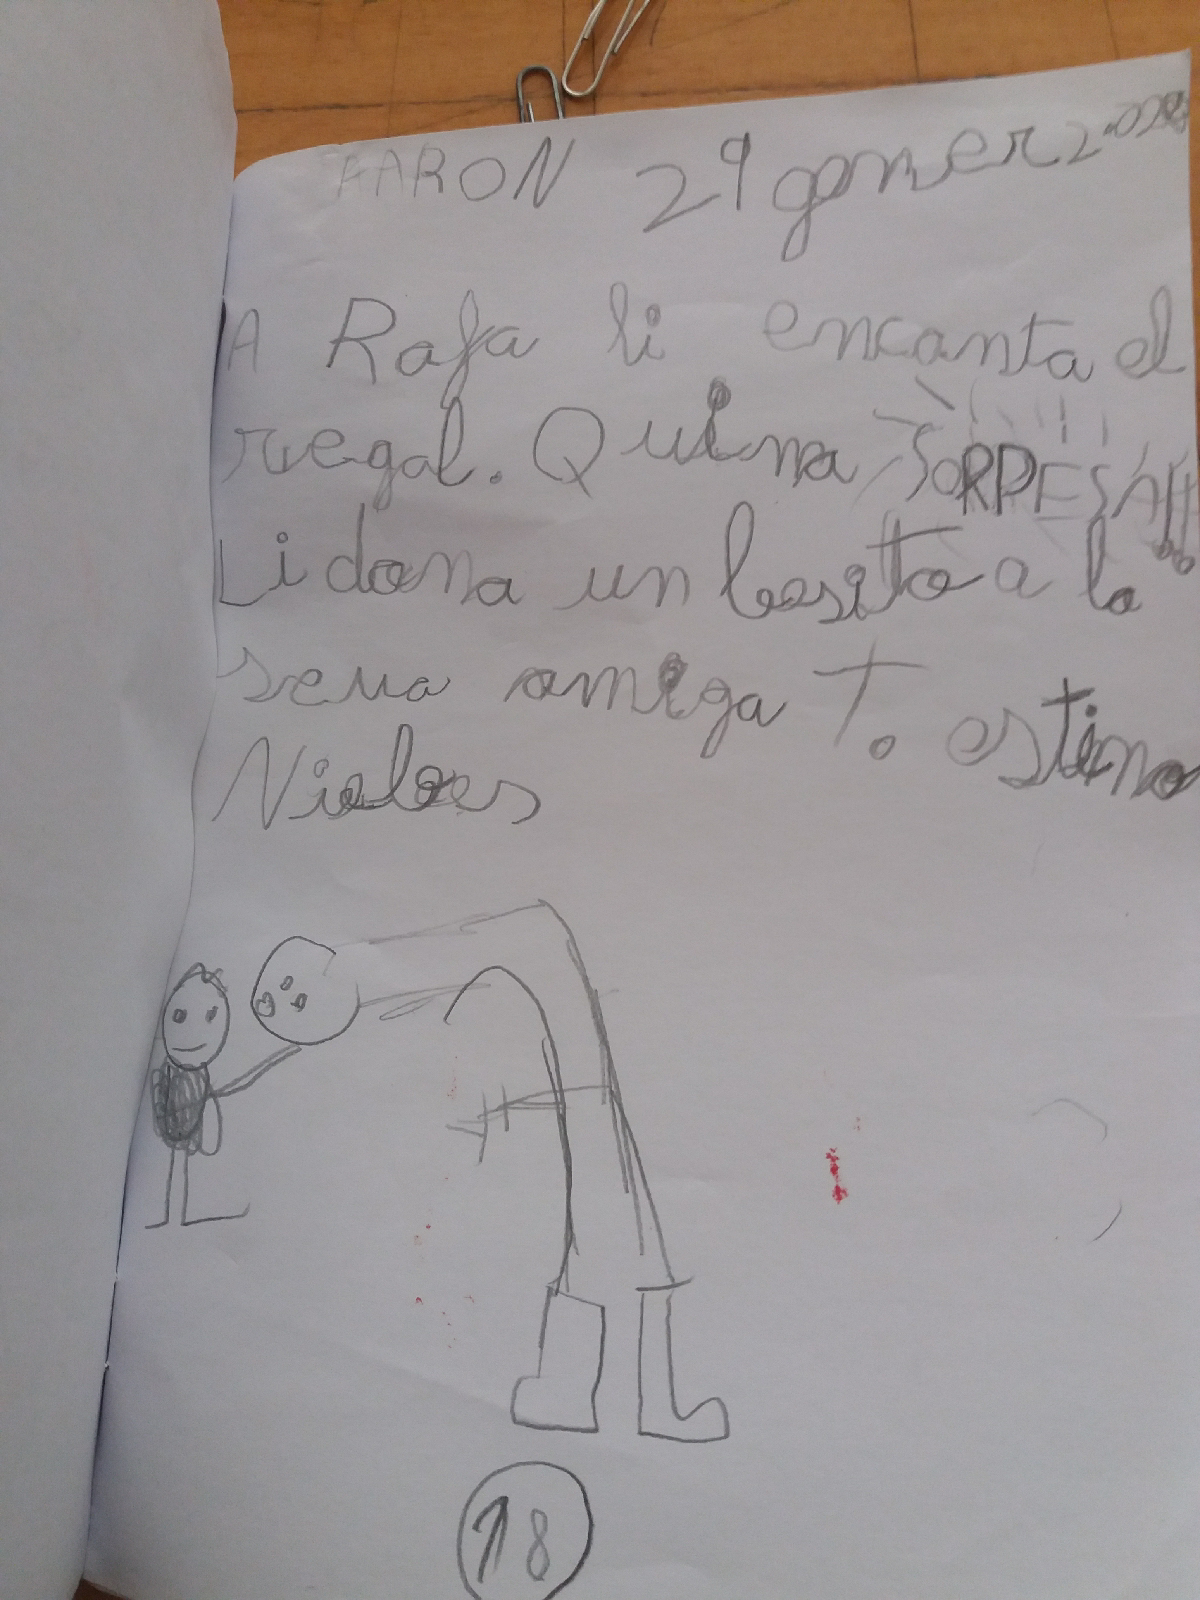 AARON 29 gener
A Rafa li encanta el
regal. Quina SORPESA!!
Li dona un besito a la
seua amiga T. estimo
Nieves
18